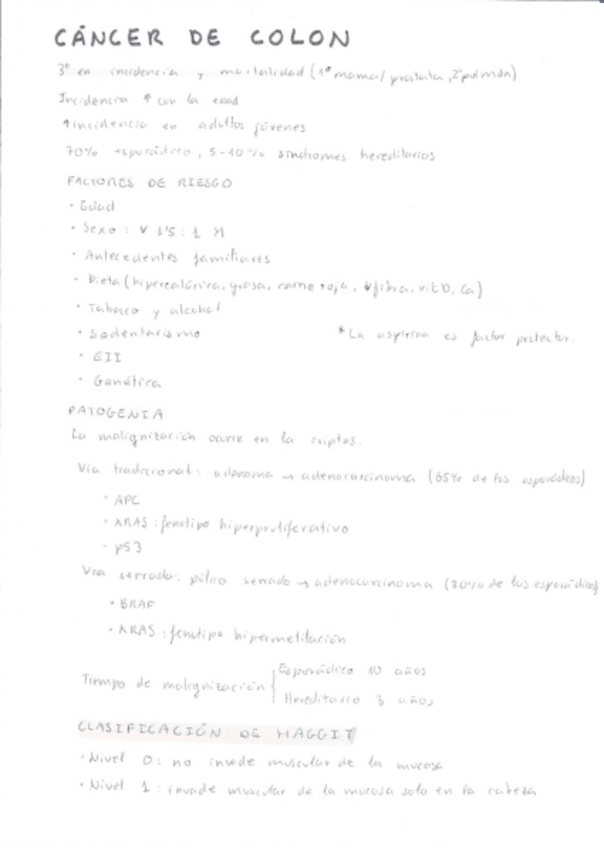 CÁNCER DE COLON
3º en incidencia y mortalidad (1º mama/ prostata, 2º pulmón)
Incidencia ↑ con la edad
↑ incidencia en adultos jóvenes
70% esporádico, 5-10% síndromes hereditarios
FACTORES DE RIESGO
· Edad
· Sexo: V 1'5:1 M
· Antecedentes familiares
· Dieta (hipercalórica, grasa, carne roja, ↓fibra, vit D, Ca)
· Tabaco y alcohol
· Sedentarismo
* La aspirina es factor protector.
· EII
· Genética
PATOGENIA
La malignización ocurre en la criptas.
Vía tradicional: adenoma → adenocarcinoma (65% de los esporádicos)
· APC
· KRAS: fenotipo hiperproliferativo
· p53
Vía serrada: pólipo serrado → adenocarcinoma (30% de los esporádicos)
· BRAF
· KRAS: fenotipo hipermetilación
Tiempo de malignización { Esporádico 10 años
Hereditario 3 años
CLASIFICACIÓN DE HAGGIT
· Nivel 0: no invade muscular de la mucosa
· Nivel 1: invade muscular de la mucosa solo en la cabeza